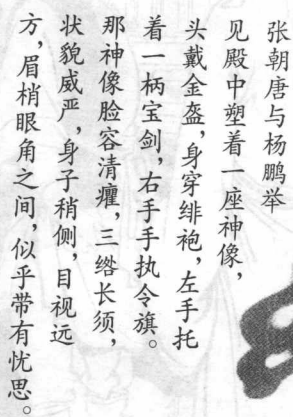 张朝唐与杨鹏举
见殿中塑着一座神像，
头戴金盔，身穿绯袍，左手托
着一柄宝剑，右手手执令旗。
那神像脸容清癯，三绺长须，
状貌威严，身子稍侧，目视远
方，眉梢眼角之间，似乎带有忧思。